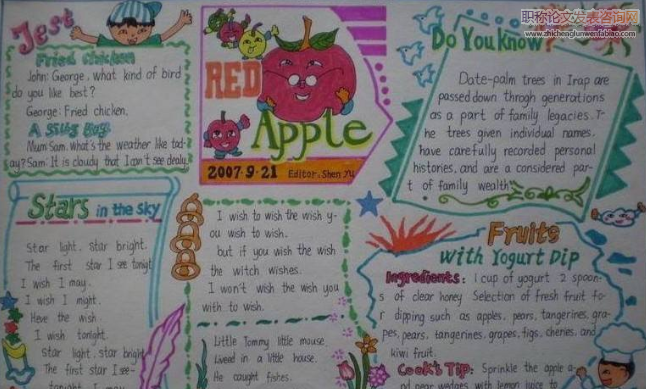 职称论文发表咨询网
www.zhichenglunwenfabiao.com
Jest
Fried Chicken
John: George, what kind of bird
do you like best?
George: Fried chicken.
A Silly Boy
Mum: Sam, what's the weather like tod-
ay? Sam: It is cloudy that I can't see dealy.
RED
Apple
2007·9·21 Editor: Shen
Do You Know?
Date-palm trees in Irap are
passed down throgh generations
as a part of family legacies. T-
he trees given individual names,
have carefully recorded personal
histories, and are a considered par-
t of family wealth.
Stars in the Sky
Star light, Star bright.
The first star I see tonigt
I wish I may.
I wish I might.
Have the wish
I wish tonight.
Star light, star bright
The first star I see-
tonight, I may
I wish to wish the wish y-
ou wish to wish.
but if you wish the wish
the witch wishes.
I won't wish the wish you
with to wish.
Little Tommy little mouse
Liveed in a little house.
He caught fishes.
Fruits
with Yogurt Dip
Ingredients: 1 cup of yogurt 2 spoon-
s of clear honey Selection of fresh fruit fo-
r dipping such as apples, pears, tangerines, gra-
pes, pears, tangerines, grapes, figs, cheries, and
kiwi fruit.
Cook's Tip: Sprinkle the apple a-
nd pear wedges with lemon juice to